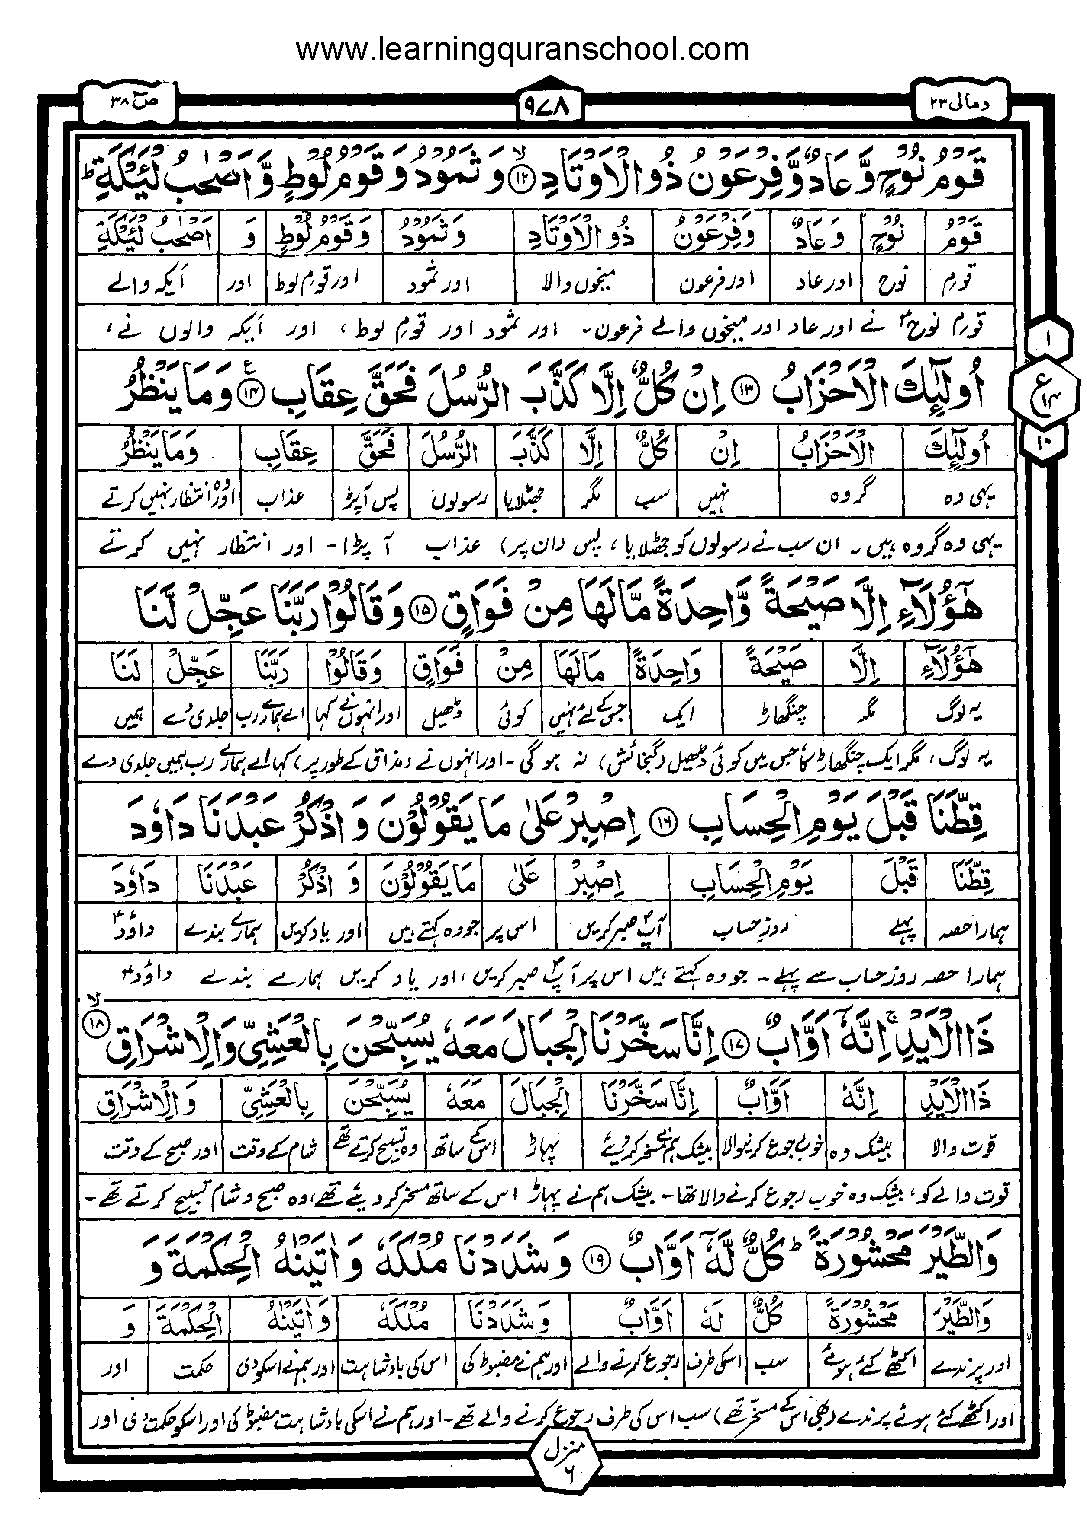 www.learningquranschool.com
ومالی ۲۳
۹۷۸
صٓ ۳۸
قَوْمُ نُوْحٍ وَّعَادٌ وَّفِرْعَوْنُ ذُو الْاَوْتَادِ ﴿۱۲﴾ۙ وَثَمُوْدُ وَقَوْمُ لُوْطٍ وَّاَصْحٰبُ لْئَیْكَةِ ؕ
قَوْمُ نُوْحٍ وَعَادٌ وَفِرْعَوْنُ ذُو الْاَوْتَادِ وَثَمُوْدُ وَقَوْمُ لُوْطٍ وَ اَصْحٰبُ لْئَیْكَةِ
قوم نوح اور عاد اور فرعون میخوں والا اور ثمود اور قوم لوط اور ایکہ والے
قوم نوحؑ نے اور عاد اور میخوں والے فرعون۔ اور ثمود اور قوم لوط، اور ایکہ والوں نے،
اُولٰٓئِكَ الْاَحْزَابُ ﴿۱۳﴾ اِنْ كُلٌّ اِلَّا كَذَّبَ الرُّسُلَ فَحَقَّ عِقَابِ ﴿۱۴﴾ع وَمَا یَنْظُرُ
۱
ع ۱۴
۱۰
اُولٰٓئِكَ الْاَحْزَابُ اِنْ كُلٌّ اِلَّا كَذَّبَ الرُّسُلَ فَحَقَّ عِقَابِ وَمَا یَنْظُرُ
یہی وہ گروہ نہیں سب مگر جھٹلایا رسولوں پس آپڑا عذاب اور وہ انتظار نہیں کرتے
یہی وہ گروہ ہیں۔ ان سب نے رسولوں کو جھٹلایا، پس (ان پر) عذاب آ پڑا۔ اور انتظار نہیں کرتے
هٰۤؤُلَآءِ اِلَّا صَیْحَةً وَّاحِدَةً مَّا لَهَا مِنْ فَوَاقٍ ﴿۱۵﴾ وَقَالُوْا رَبَّنَا عَجِّلْ لَّنَا
هٰۤؤُلَآءِ اِلَّا صَیْحَةً وَاحِدَةً مَا لَهَا مِنْ فَوَاقٍ وَقَالُوْا رَبَّنَا عَجِّلْ لَنَا
یہ لوگ مگر چنگھاڑ ایک جس کے لئے نہیں کوئی ڈھیل اور انہوں نے کہا اے ہمارے رب جلدی دے ہمیں
یہ لوگ، مگر ایک چنگھاڑ کا جس میں کوئی ڈھیل (گنجائش) نہ ہو گی۔ اور انہوں نے (مذاق کے طور پر) کہا اے ہمارے رب ہمیں جلدی دے
قِطَّنَا قَبْلَ یَوْمِ الْحِسَابِ ﴿۱۶﴾ اِصْبِرْ عَلٰی مَا یَقُوْلُوْنَ وَاذْكُرْ عَبْدَنَا دَاوٗدَ
قِطَّنَا قَبْلَ یَوْمِ الْحِسَابِ اِصْبِرْ عَلٰی مَا یَقُوْلُوْنَ وَ اذْكُرْ عَبْدَنَا دَاوٗدَ
ہمارا حصہ پہلے روزِ حساب آپؐ صبر کریں اس پر جو وہ کہتے ہیں اور یاد کریں ہمارے بندے داؤدؑ
ہمارا حصہ روزِ حساب سے پہلے۔ جو وہ کہتے ہیں اس پر آپؐ صبر کریں، اور یاد کریں ہمارے بندے داؤدؑ
ذَا الْاَیْدِ ۚ اِنَّهٗۤ اَوَّابٌ ﴿۱۷﴾ اِنَّا سَخَّرْنَا الْجِبَالَ مَعَهٗ یُسَبِّحْنَ بِالْعَشِیِّ وَالْاِشْرَاقِ ﴿۱۸﴾ۙ
ذَا الْاَیْدِ اِنَّهٗ اَوَّابٌ اِنَّا سَخَّرْنَا الْجِبَالَ مَعَهٗ یُسَبِّحْنَ بِالْعَشِیِّ وَالْاِشْرَاقِ
قوت والا بیشک وہ خوب رجوع کرنیوالا بیشک ہم نے مسخر کر دیئے پہاڑ اس کے ساتھ وہ تسبیح کرتے تھے شام کے وقت اور صبح کے وقت
قوت والے کو، بیشک وہ خوب رجوع کرنے والا تھا۔ بیشک ہم نے پہاڑ اس کے ساتھ مسخر کر دیئے تھے، وہ صبح و شام تسبیح کرتے تھے۔
وَالطَّیْرَ مَحْشُوْرَةً ؕ كُلٌّ لَّهٗۤ اَوَّابٌ ﴿۱۹﴾ وَشَدَدْنَا مُلْكَهٗ وَاٰتَیْنٰهُ الْحِكْمَةَ وَ
وَالطَّیْرَ مَحْشُوْرَةً كُلٌّ لَهٗ اَوَّابٌ وَشَدَدْنَا مُلْكَهٗ وَاٰتَیْنٰهُ الْحِكْمَةَ وَ
اور پرندے اکٹھے کئے ہوئے سب اسکی طرف رجوع کرنے والے اور ہم نے مضبوط کی اس کی بادشاہت اور ہم نے اسکو دی حکمت اور
اور اکٹھے کئے ہوئے پرندے (بھی اس کے مسخر تھے) سب اس کی طرف رجوع کرنے والے تھے۔ اور ہم نے اسکی بادشاہت مضبوط کی اور اسکو حکمت دی اور
منزل ۶